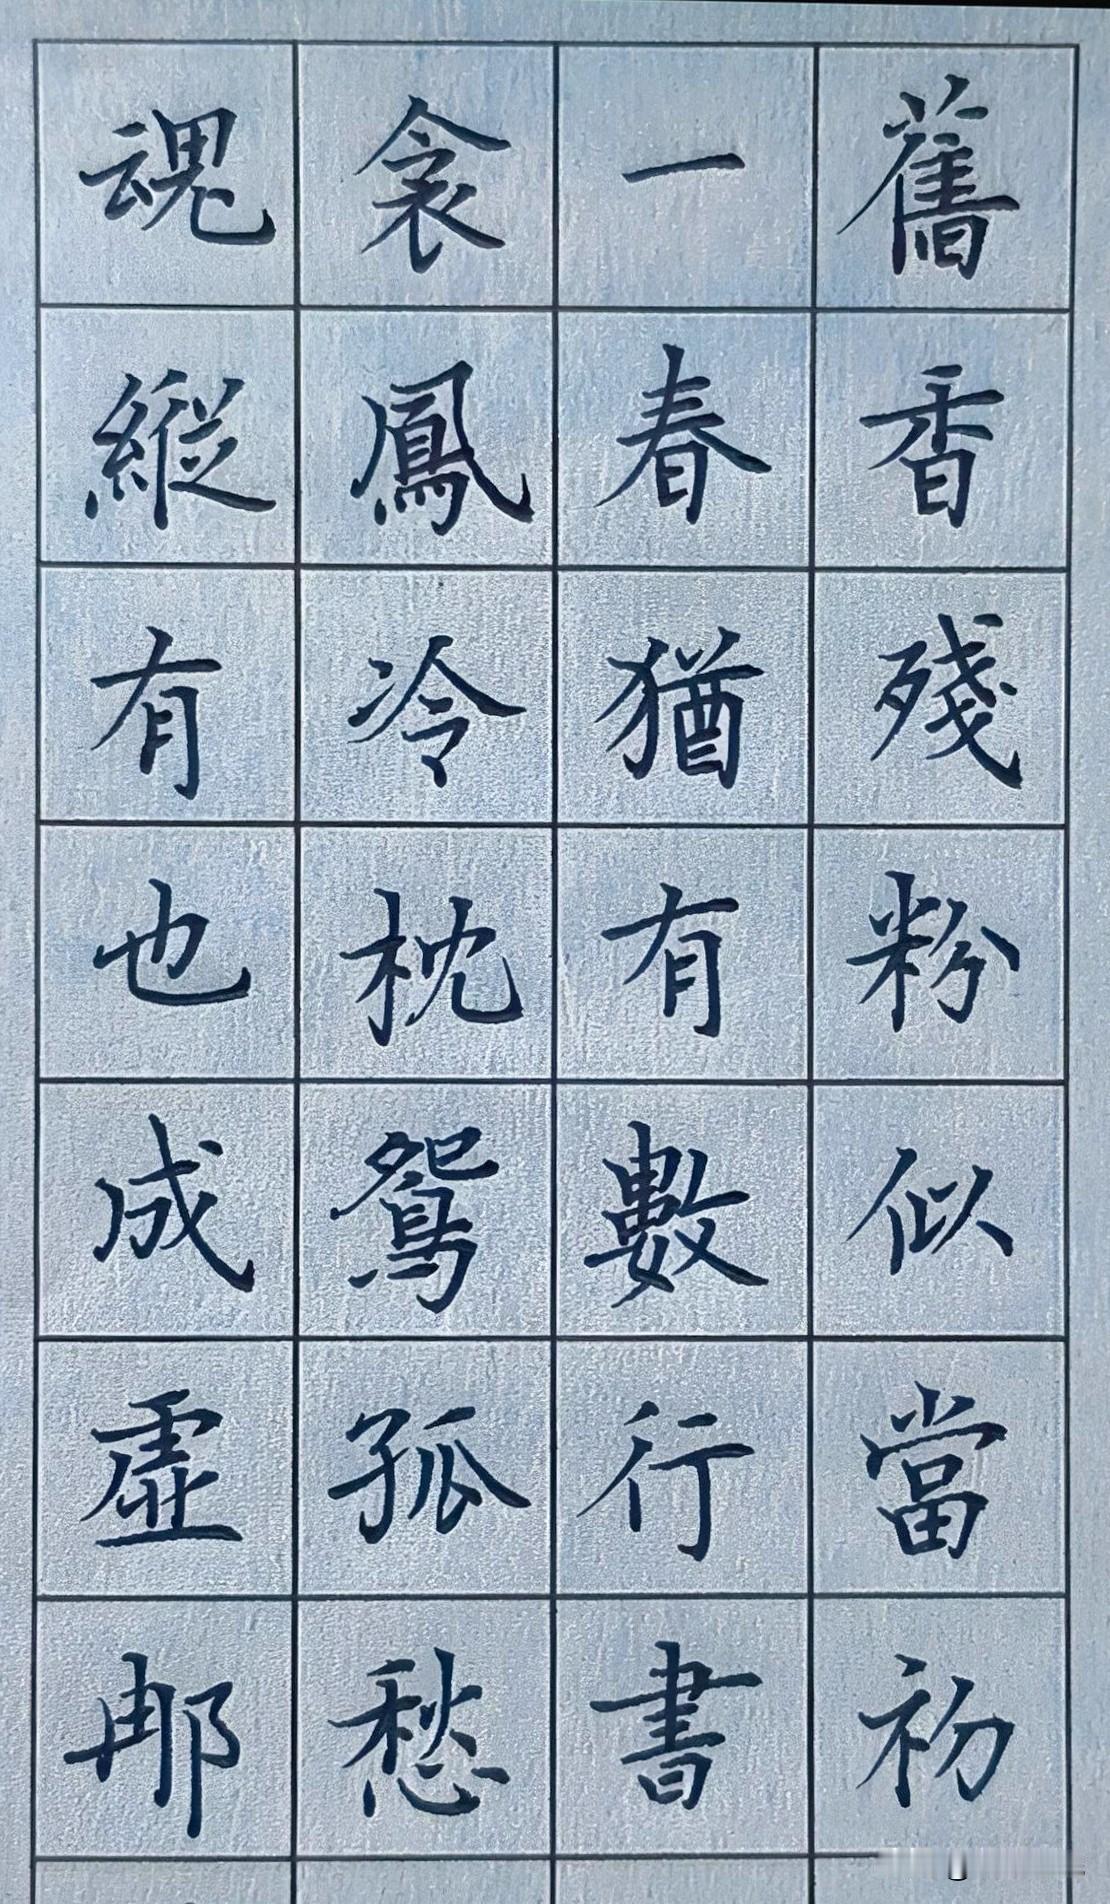 舊香殘粉似當初
一春猶有數行書
衾鳳冷枕鴛孤愁
魂縱有也成虛那